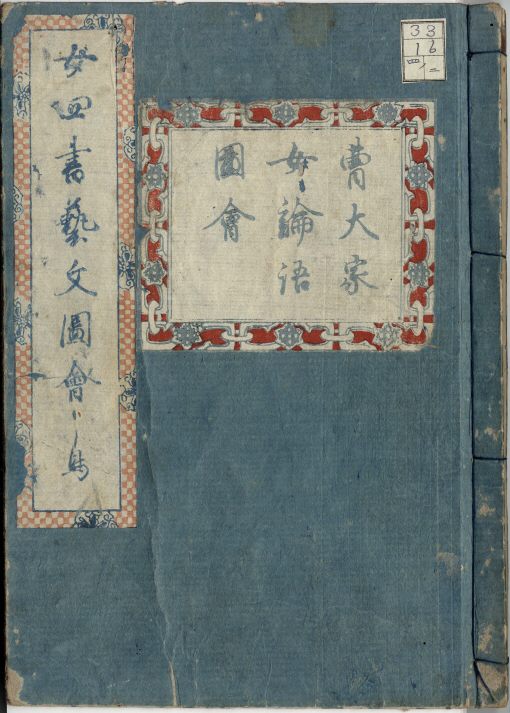 女四書藝文圖會
曹大家
女論語
圖會
33
16
四ノ二